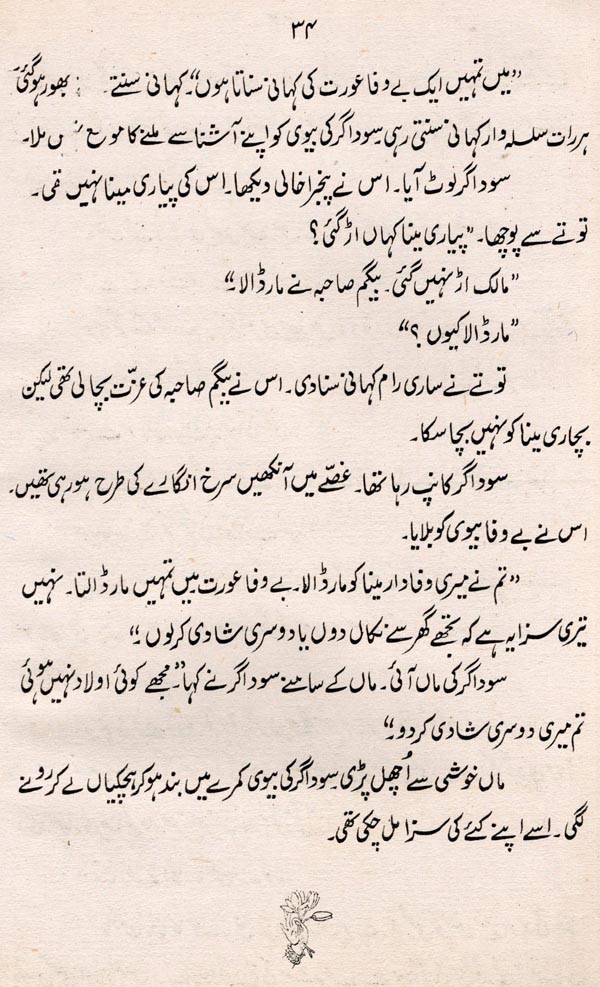 ۳۴
”میں تمہیں ایک بے وفا عورت کی کہانی سناتا ہوں“۔ کہانی سنتے بھور ہو گئی۔
ہر رات سلسلہ وار کہانی سنتی رہی۔ سوداگر کی بیوی کو اپنے آشنا سے ملنے کا ملا۔
سوداگر لوٹ آیا۔ اس نے پنجرا خالی دیکھا۔ اس کی پیاری مینا نہیں تھی۔
توتے سے پوچھا۔ ”پیاری مینا کہاں اڑ گئی؟
”مالک اڑ نہیں گئی۔ بیگم صاحبہ نے مار ڈالا۔“
”مار ڈالا کیوں؟“
توتے نے ساری رام کہانی سنا دی۔ اس نے بیگم صاحبہ کی عزّت بچالی تھی لیکن
بچاری مینا کو نہیں بچا سکا۔
سوداگر کانپ رہا تھا۔ غصّے میں آنکھیں سرخ انگارے کی طرح ہو رہی تھیں۔
اس نے بے وفا بیوی کو بلایا۔
”تم نے میری وفادار مینا کو مار ڈالا۔ بے وفا عورت میں تمہیں مار ڈالتا۔ نہیں
تیری سزا یہ ہے کہ تجھے گھر سے نکال دوں یا دوسری شادی کر لوں۔“
سوداگر کی ماں آئی۔ ماں کے سامنے سوداگر نے کہا۔ ”مجھے کوئی اولاد نہیں ہوئی
تم میری دوسری شادی کر دو۔“
ماں خوشی سے اُچھل پڑی۔ سوداگر کی بیوی کمرے میں بند ہو کر ہچکیاں لے کر رونے
لگی۔ اسے اپنے کئے کی سزا مل چکی تھی۔